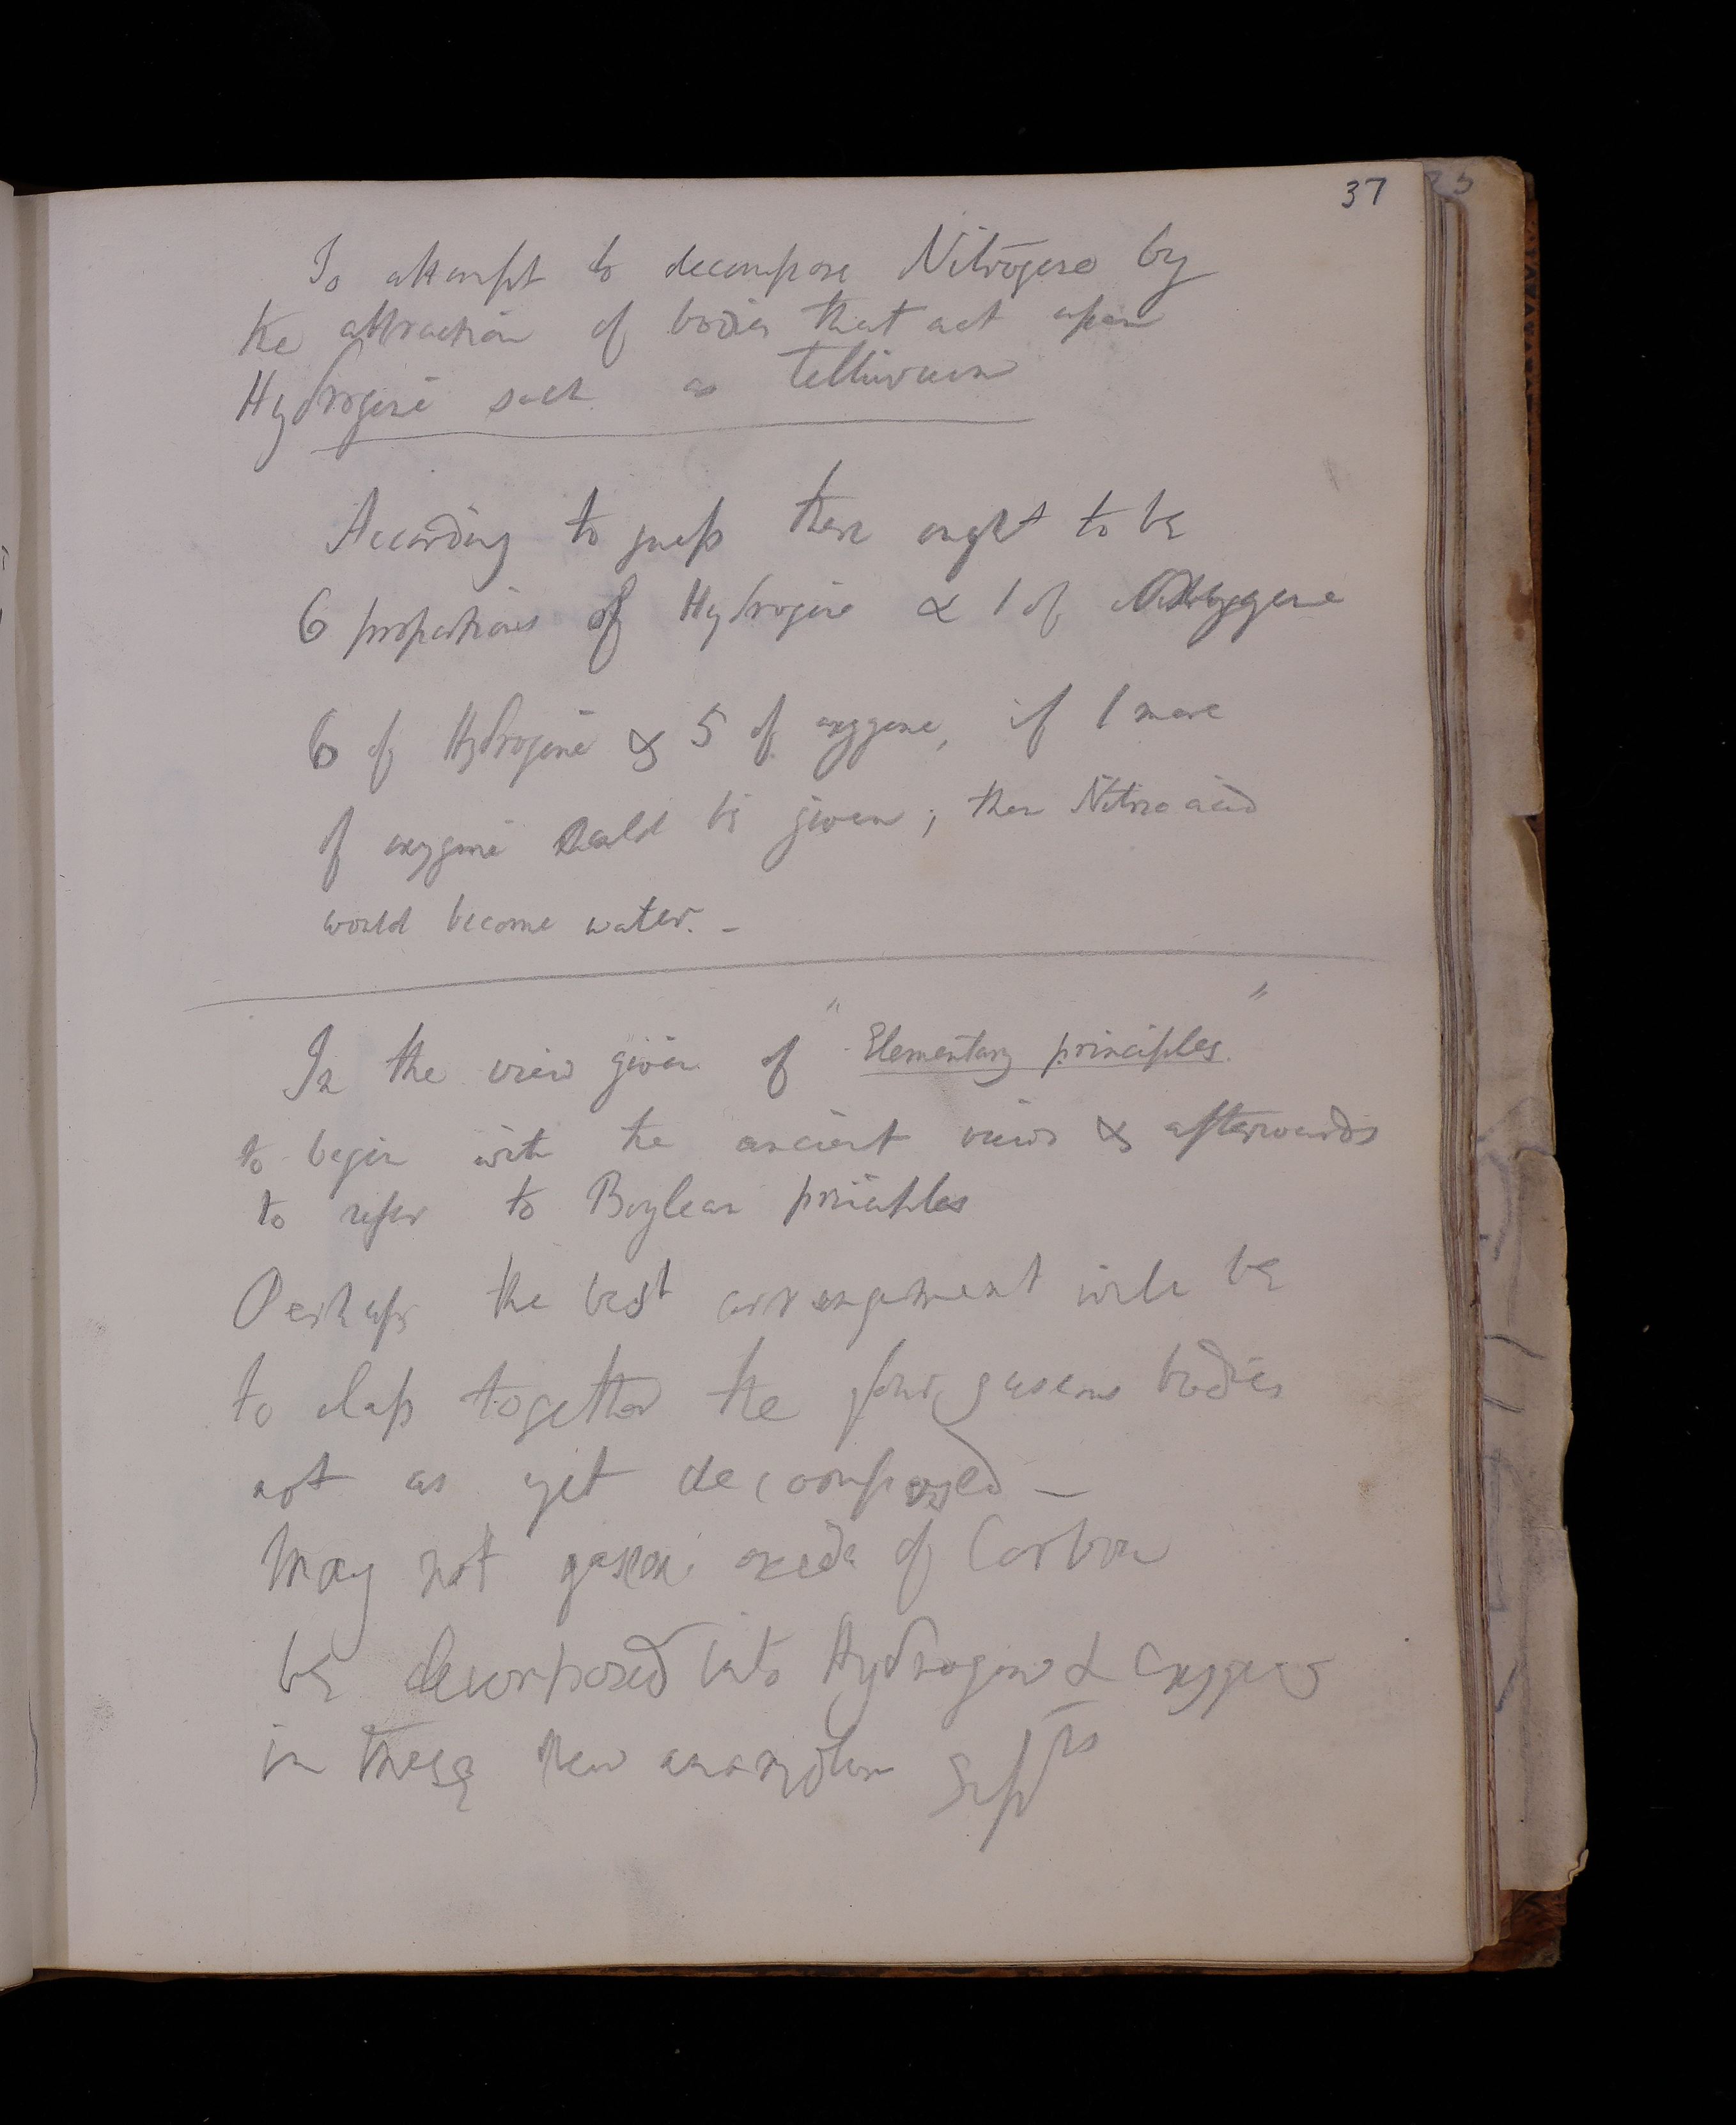 37
To attempt to decompose Nitrogene by
the attraction of bodies that act upon
Hydrogene such as Tellurium
According to guess there ought to be
6 proportions of Hydrogene & 1 of Oxygene
6 of Hydrogene & 5 of oxygene, if 1 more
of oxygene could be given; then Nitric acid
would become water. -
In the view given of "Elementary principles"
to begin with the ancient views & afterwards
to refer to Boylean principles
Perhaps the best arrangement will be
to class together the four gaseous bodies
not as yet decomposed -
May not gaseous oxide of Carbon
be decomposed into Hydrogene & oxygene
in these new